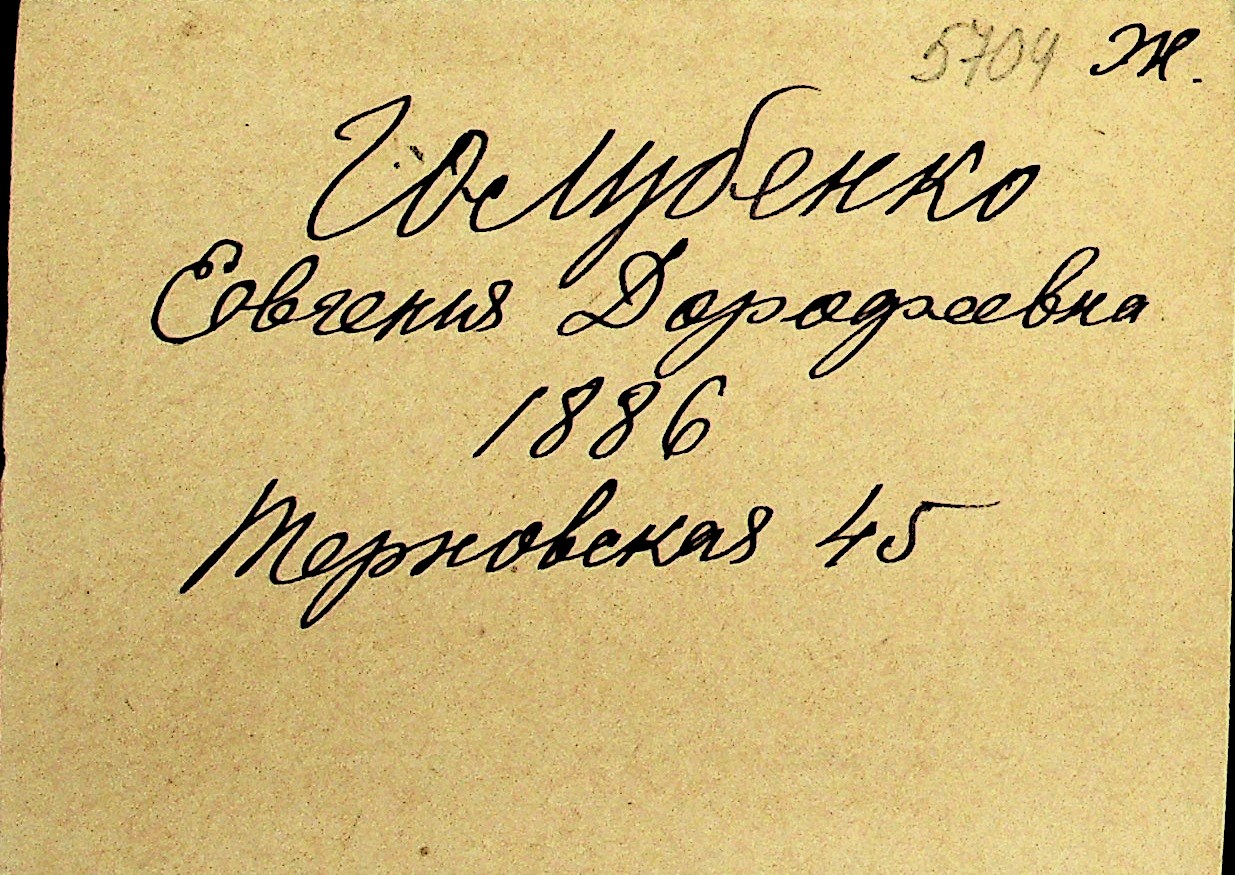 5704 Ж.
Голубенко
Евгения Дорофеевна
1886
Терновская 45